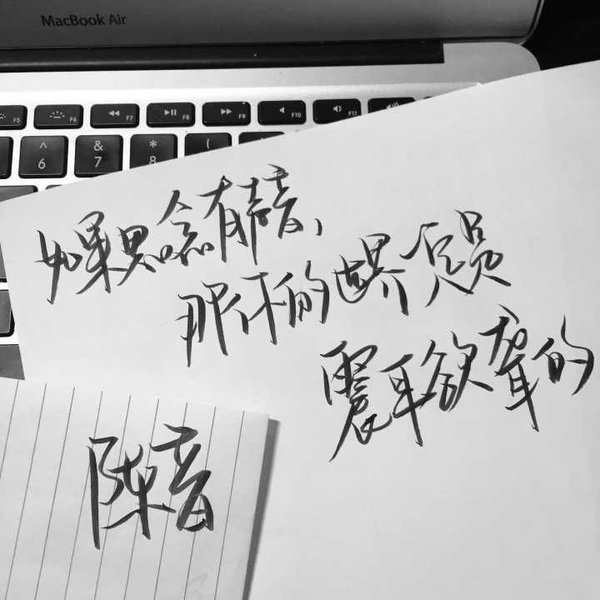 MacBook Air
F5 F6 F7 F8 F9 F10 F11
^ & * (
6 7 8
如果思念有声音，
那你的世界是
震耳欲聋的
陈音